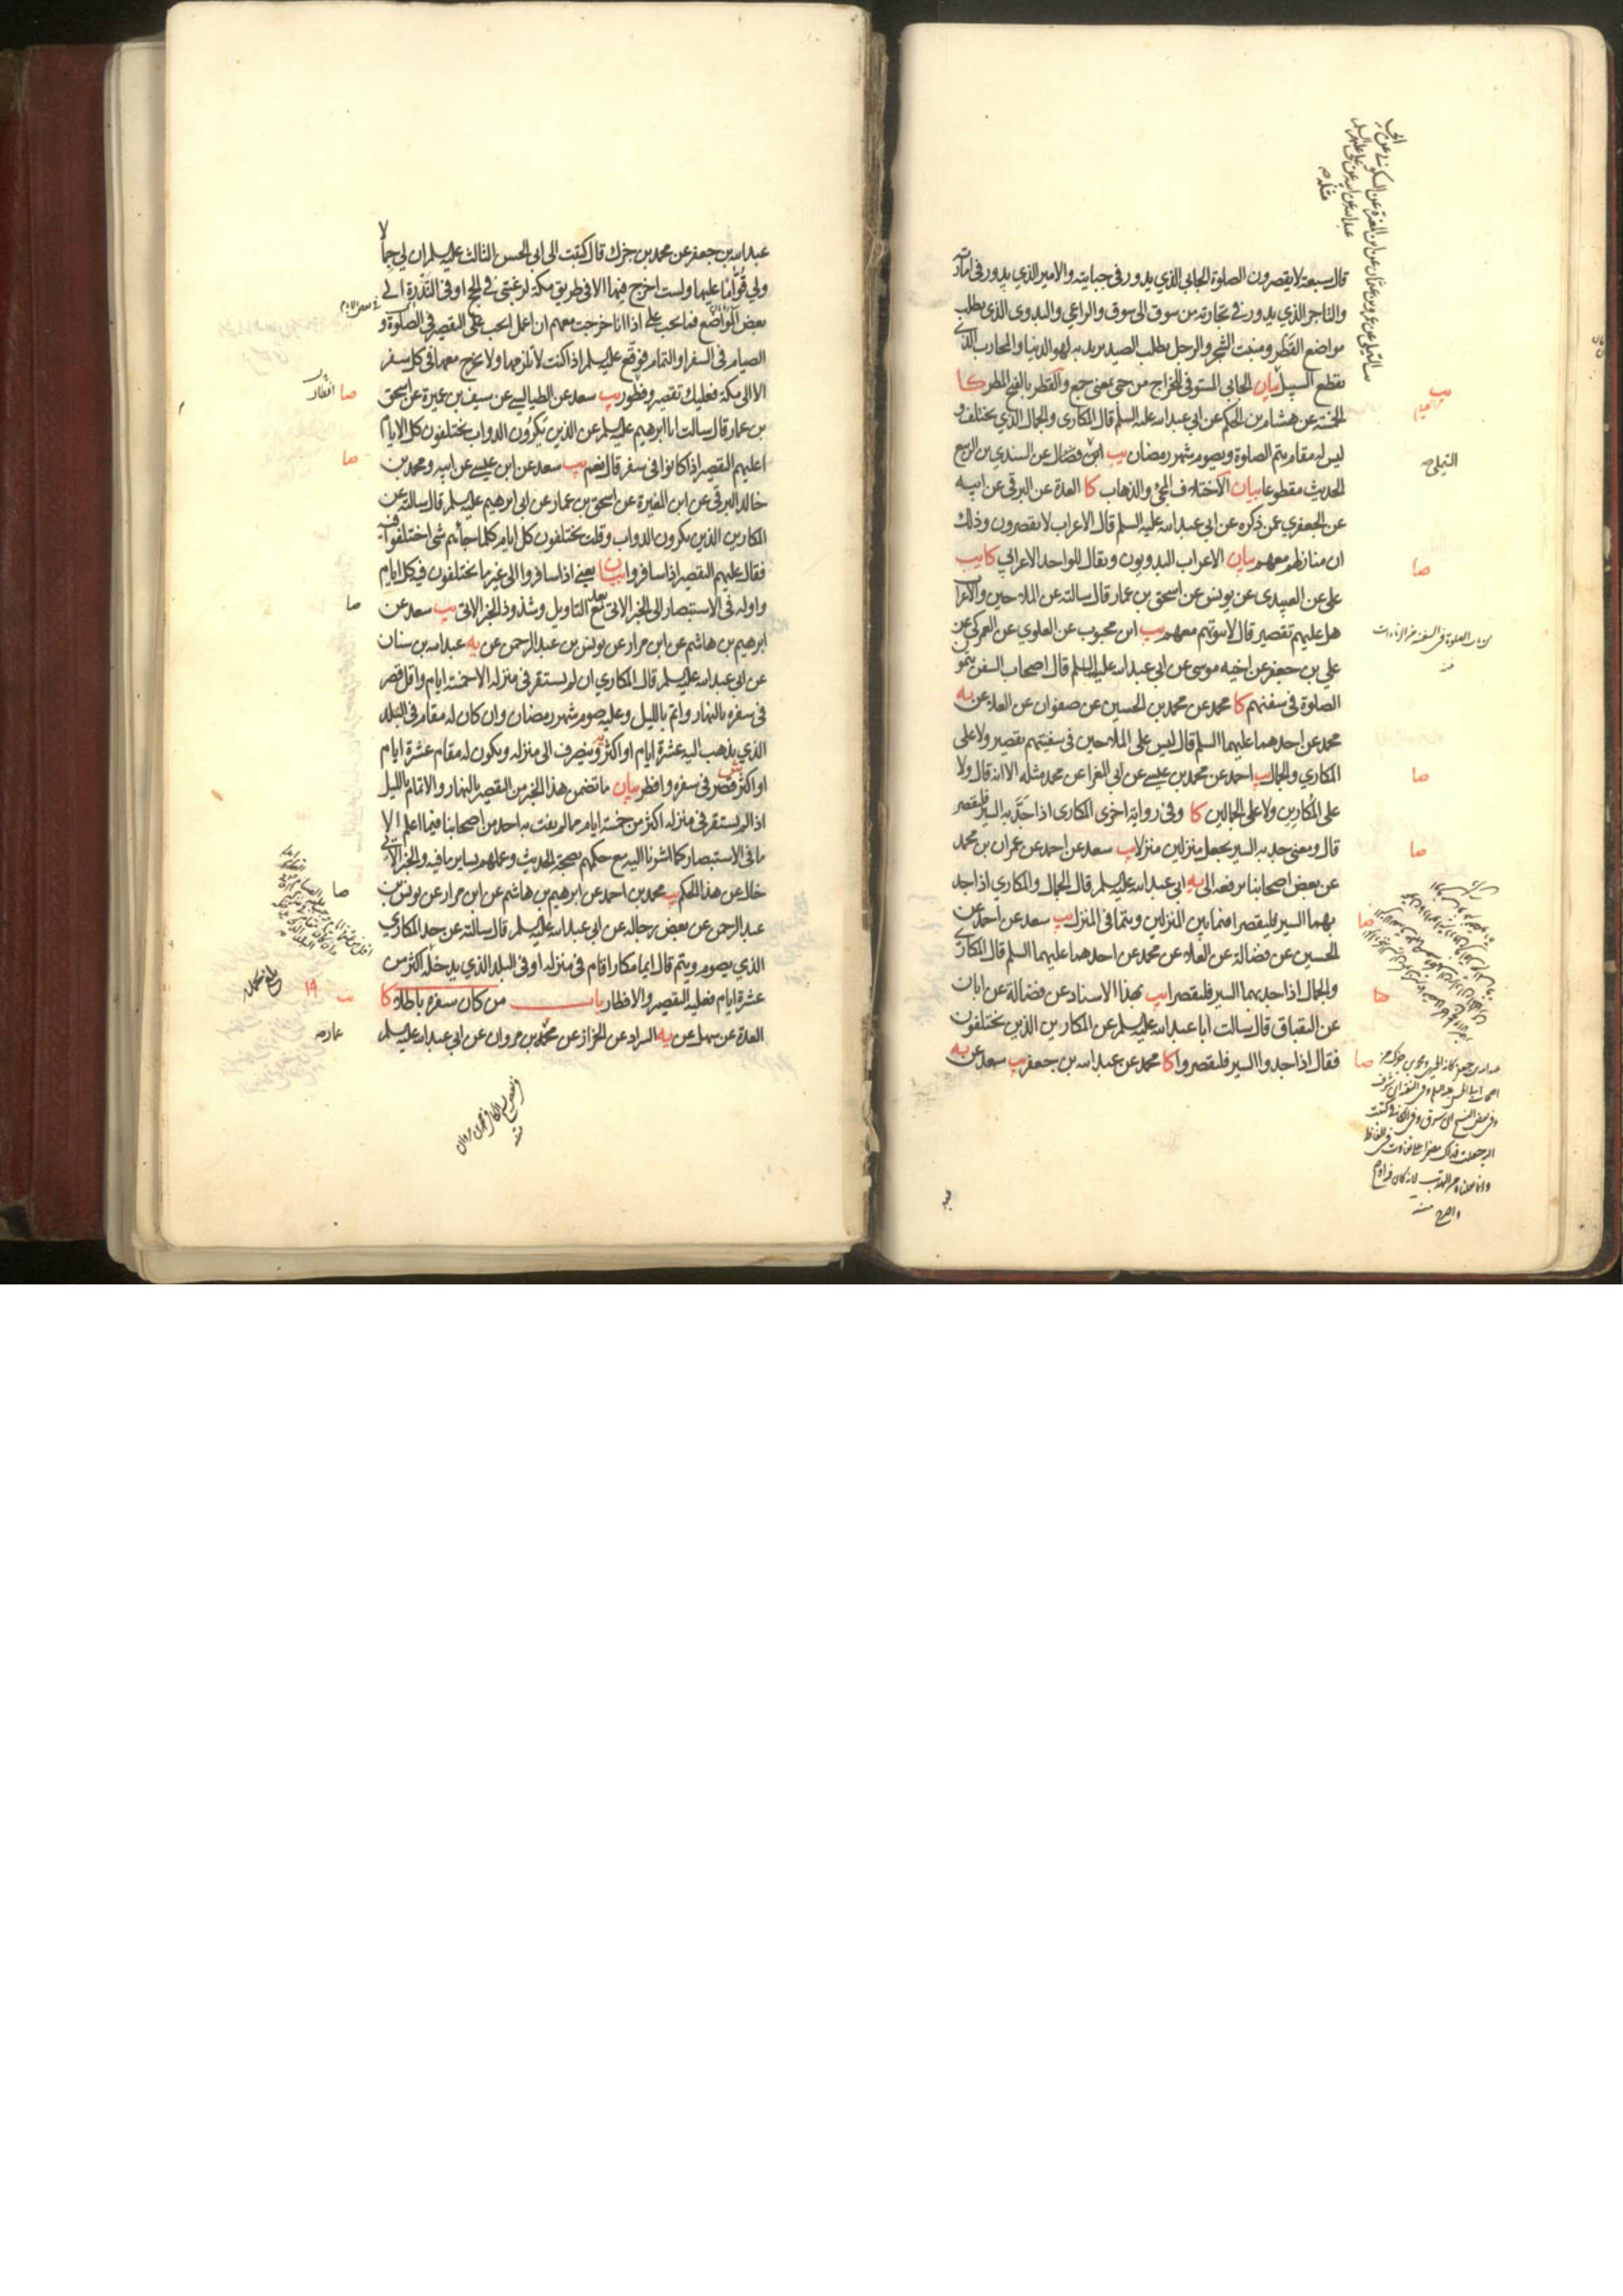 قال سبعة لا يقصرون الصلوة الجابي الذي يدور في جبايته والامير الذي يدور في امارته
والتاجر الذي يدور في تجارته من سوق الى سوق والراعي والبدوي الذي يطلب
مواضع القطر ومنبت الشجر والرجل يطلب الصيد يريد به لهو الدنيا والمحارب الذي
يقطع السبيل بيان الجابي المستوفي للخراج من جبى بمعنى جمع والقطر بالفتح المطر كا
الخمسة عن هشام بن الحكم عن ابي عبد الله عليه السلم قال المكاري والجمال الذي يختلف و
ليس له مقام يتم الصلوة ويصوم شهر رمضان يب ابن فضال عن السندي بن الربيع
الحديث مقطوعا بيان الاختلاف المجئ والذهاب كا العدة عن البرقي عن ابيه
عن الجعفري عمن ذكره عن ابي عبد الله عليه السلم قال الاعراب لا يقصرون وذلك
ان منازلهم معهم بيان الاعراب البدويون ويقال للواحد الاعرابي كا يب
علي عن العبيدي عن يونس عن اسحق بن عمار قال سالته عن الملاحين والاعراب
هل عليهم تقصير قال لا بيوتهم معهم يب ابن محبوب عن العلوي عن العمركي عن
علي بن جعفر عن اخيه موسى عن ابي عبد الله عليه السلم قال اصحاب السفن يتمون
الصلوة في سفنهم كا محمد عن محمد بن الحسين عن صفوان عن العلا عن به
محمد عن احدهما عليهما السلم قال ليس على الملاحين في سفينتهم تقصير ولا على
المكاري والجمال يب احمد عن محمد بن عيسى عن ابي المغرا عن محمد مثله الا انه قال ولا
على المكارين ولا على الجمالين كا وفي رواية اخرى المكاري اذا جد به السير فليقصر
قال ومعنى جد به السير يجعل منزلين منزلا يب سعد عن احمد عن عمران بن محمد
عن بعض اصحابنا يرفعه الى به ابي عبد الله عليه السلم قال الجمال والمكاري اذا جد
بهما السير فليقصرا فيما بين المنزلين ويتما في المنزل يب سعد عن احمد عن
الحسين عن فضالة عن العلاء عن محمد عن احدهما عليهما السلم قال المكاري
والجمال اذا جد بهما السير فليقصرا يب بهذا الاسناد عن فضالة عن ابان
عن البقباق قال سالت ابا عبد الله عليه السلم عن المكارين الذين يختلفون
فقال اذا جدوا السير فليقصروا كا محمد عن عبد الله بن جعفر يب سعد عن به
صا
صا
صا
صا
صا
عبد الله بن جعفر عن محمد بن جزك قال كتبت الى ابي الحسن الثالث عليه السلم ان لي جمالا
ولي قواما عليها ولست اخرج فيها الا في طريق مكة لرغبتي في الحج او في الندرة الى
بعض المواضع فما يجب علي اذا انا خرجت معهم ان اعمل ايجب علي التقصير في الصلوة و
الصيام في السفر او التمام فوقع عليه السلم اذا كنت لا تلزمها ولا تخرج معها في كل سفر
الا الى مكة فعليك تقصير وفطور يب سعد عن الطيالسي عن سيف بن عميرة عن اسحق
بن عمار قال سالت ابا ابرهيم عليه السلم عن الذين يكرون الدواب يختلفون كل الايام
اعليهم التقصير اذا كانوا في سفر قال نعم يب سعد عن ابن عيسى عن ابيه ومحمد بن
خالد البرقي عن ابن المغيرة عن اسحق بن عمار عن ابي ابرهيم عليه السلم قال سالته عن
المكارين الذين يكرون الدواب وقلت يختلفون كل ايام كلما جائهم شئ اختلفوا فيه
فقال عليهم التقصير اذا سافروا بيان يعني اذا سافروا الى غير ما يختلفون فيه كل ايام
واوله في الاستبصار الى الخبر الاتي مع بعد التاويل وشذوذ الخبر الاتي يب سعد عن
ابرهيم بن هاشم عن ابن مرار عن يونس بن عبد الرحمن عن به عبد الله بن سنان
عن ابي عبد الله عليه السلم قال المكاري ان لم يستقر في منزله الا خمسة ايام واقل قصر
في سفره بالنهار واتم بالليل وعليه صوم شهر رمضان وان كان له مقام في البلد
الذي يذهب اليه عشرة ايام او اكثر وينصرف الى منزله ويكون له مقام عشرة ايام
او اكثر قصر في سفره وافطر بيان ما تضمن هذا الخبر من التقصير بالنهار والاتمام بالليل
اذا لم يستقر في منزله اكثر من خمسة ايام مما لم يفت به احد من اصحابنا فيما اعلم الا
ما في الاستبصار كما اشرنا اليه مع حكمهم بصحة الحديث وعملهم بساير ما فيه والخبر الاتي
خال عن هذا الحكم يب محمد بن احمد عن ابرهيم بن هاشم عن ابن مرار عن يونس بن
عبد الرحمن عن بعض رجاله عن ابي عبد الله عليه السلم قال سالته عن حد المكاري
الذي يصوم ويتم قال ايما مكار اقام في منزله او في البلد الذي يدخله اكثر من
عشرة ايام فعليه التقصير والافطار باب من كان سفره باطلا كا
العدة عن سهل عن به السراد عن الخزاز عن محمد بن مروان عن ابي عبد الله عليه السلم
صا
صا
صا
صا
١٩